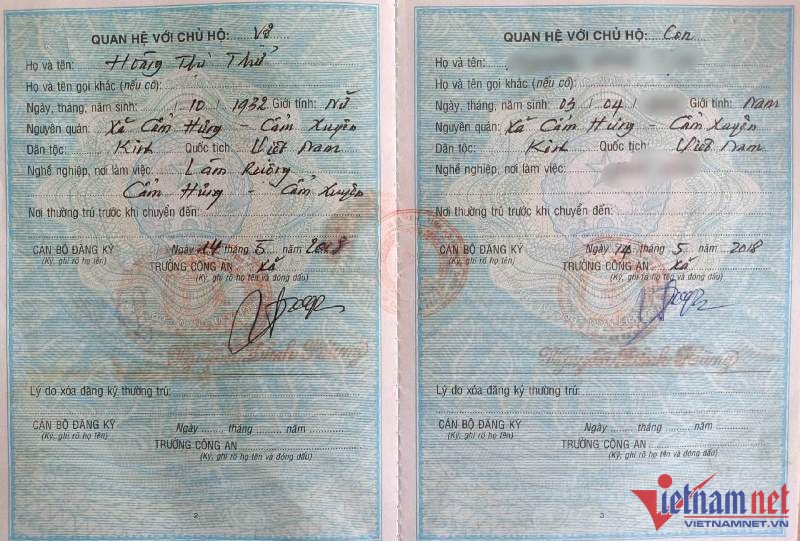 QUAN HỆ VỚI CHỦ HỘ: Vợ
Họ và tên: Hoàng Thị Thử
Họ và tên gọi khác (nếu có):
Ngày, tháng, năm sinh: / 10 / 1932 Giới tính: Nữ
Nguyên quán: Xã Cẩm Hưng - Cẩm Xuyên
Dân tộc: Kinh Quốc tịch: Việt Nam
Nghề nghiệp, nơi làm việc: Làm Ruộng
Cẩm Hưng - Cẩm Xuyên
Nơi thường trú trước khi chuyển đến:
CÁN BỘ ĐĂNG KÝ Ngày 14 tháng 5 năm 2018
(Ký, ghi rõ họ tên) TRƯỞNG CÔNG AN Xã
(Ký, ghi rõ họ tên và đóng dấu)
Nguyễn Đình
Lý do xóa đăng ký thường trú:
CÁN BỘ ĐĂNG KÝ Ngày ..... tháng ..... năm .....
(Ký, ghi rõ họ tên) TRƯỞNG CÔNG AN
(Ký, ghi rõ họ tên và đóng dấu)
2
QUAN HỆ VỚI CHỦ HỘ: Con
Họ và tên:
Họ và tên gọi khác (nếu có):
Ngày, tháng, năm sinh: 03 / 04 / Giới tính: Nam
Nguyên quán: Xã Cẩm Hưng - Cẩm Xuyên
Dân tộc: Kinh Quốc tịch: Việt Nam
Nghề nghiệp, nơi làm việc:
Nơi thường trú trước khi chuyển đến:
CÁN BỘ ĐĂNG KÝ Ngày 14 tháng 5 năm 2018
(Ký, ghi rõ họ tên) TRƯỞNG CÔNG AN Xã
(Ký, ghi rõ họ tên và đóng dấu)
Nguyễn Đình
Lý do xóa đăng ký thường trú:
CÁN BỘ ĐĂNG KÝ Ngày ..... tháng ..... năm .....
(Ký, ghi rõ họ tên) TRƯỞNG CÔNG AN
(Ký, ghi rõ họ tên và đóng dấu)
3
Vietnamnet
VIETNAMNET.VN